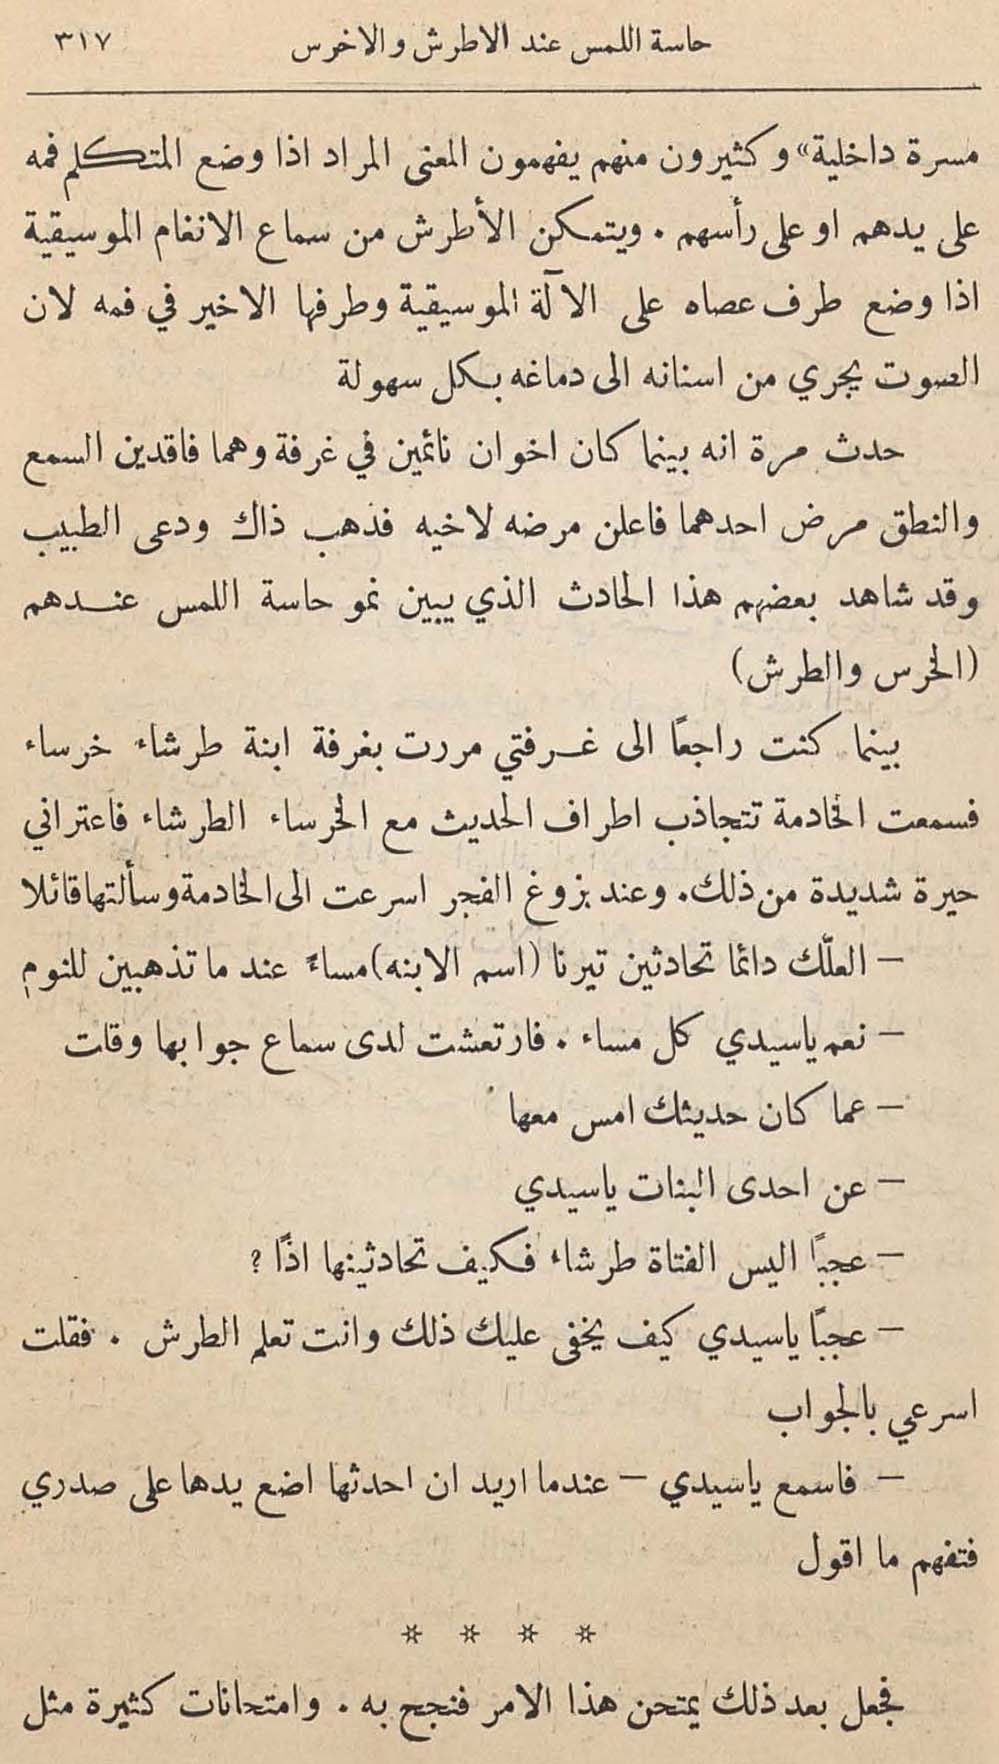 حاسة اللمس عند الاطرش والاخرس ٣١٧
مسرة داخلية» وكثيرون منهم يفهمون المعنى المراد اذا وضع المتكلم فمه
على يدهم او على رأسهم . ويتمكن الأطرش من سماع الانغام الموسيقية
اذا وضع طرف عصاه على الآلة الموسيقية وطرفها الاخير في فمه لان
الصوت يجري من اسنانه الى دماغه بكل سهولة
حدث مرة انه بينما كان اخوان نائمين في غرفة وهما فاقدين السمع
والنطق مرض احدهما فاعلن مرضه لاخيه فذهب ذاك ودعى الطبيب
وقد شاهد بعضهم هذا الحادث الذي يبين نمو حاسة اللمس عندهم
(الخرس والطرش)
بينما كنت راجعاً الى غرفتي مررت بغرفة ابنة طرشاء خرساء
فسمعت الخادمة تتجاذب اطراف الحديث مع الخرساء الطرشاء فاعتراني
حيرة شديدة من ذلك. وعند بزوغ الفجر اسرعت الى الخادمة وسألتها قائلا
– العلّك دائما تحادثين تيرنا (اسم الابنه) مساءً عند ما تذهبين للنوم
– نعم ياسيدي كل مساء . فارتعشت لدى سماع جوابها وقلت
– عما كان حديثك امس معها
– عن احدى البنات ياسيدي
– عجباً اليس الفتاة طرشاء فكيف تحادثينها اذاً ؟
– عجباً ياسيدي كيف يخفى عليك ذلك وانت تعلم الطرش . فقلت
اسرعي بالجواب
– فاسمع ياسيدي – عندما اريد ان احدثها اضع يدها على صدري
فتفهم ما اقول
* * * *
فجعل بعد ذلك يمتحن هذا الامر فنجح به . وامتحانات كثيرة مثل